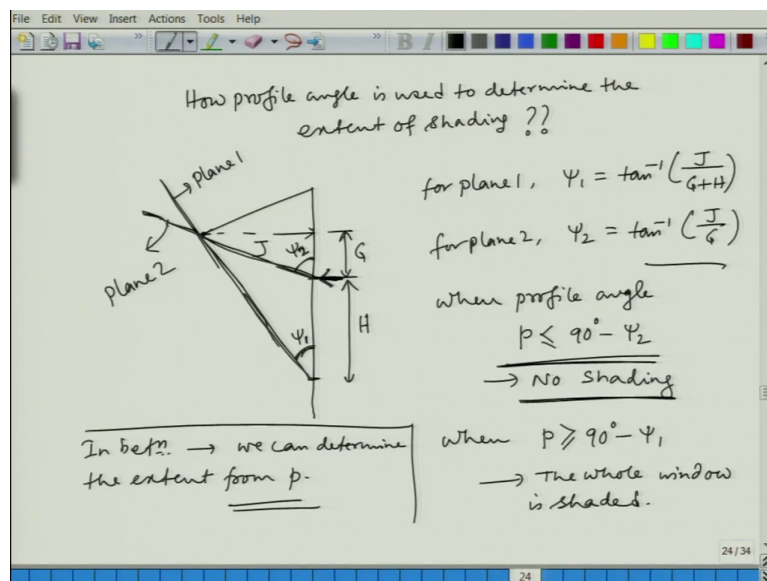 File Edit View Insert Actions Tools Help
B I
How profile angle is used to determine the
extent of shading ??
plane1
plane2
J
ψ2
G
ψ1
H
for plane1, ψ1 = tan⁻¹(J/G+H)
for plane2, ψ2 = tan⁻¹(J/G)
when profile angle
p ≤ 90° - ψ2
→ No shading
when p ≥ 90° - ψ1
→ The whole window
is shaded.
In betn. → we can determine
the extent from p.
24/34
24